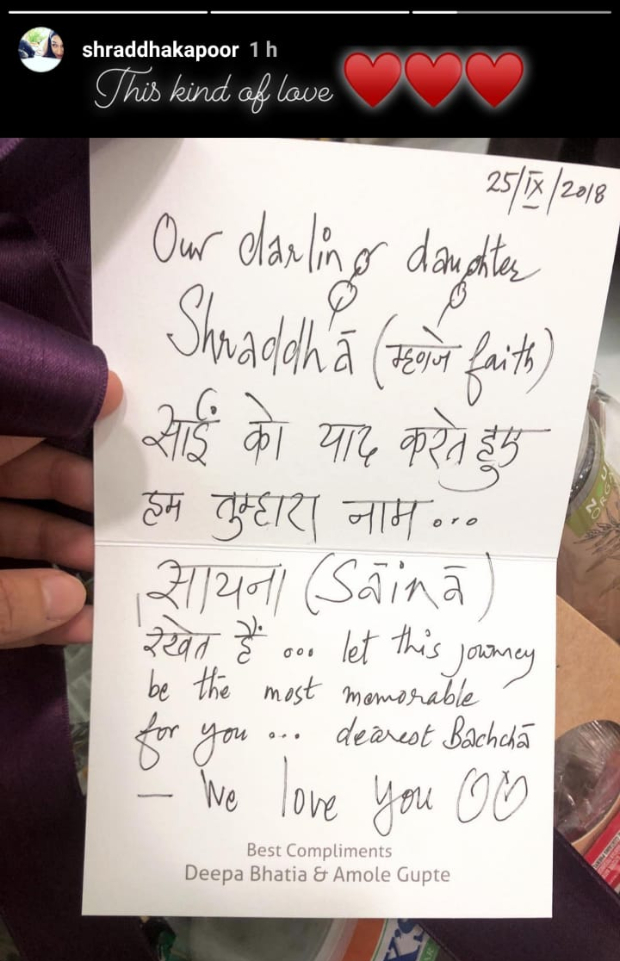 shraddhakapoor 1 h
This kind of love ❤️❤️❤️
25/IX/2018
Our darling daughter
Shraddhā (म्हणजे faith)
साईं को याद करते हुए
हम तुम्हारा नाम...
सायना (Sāinā)
रखते हैं ... let this journey
be the most memorable
for you ... dearest Bachchā
— We love you ♡♡
Best Compliments
Deepa Bhatia & Amole Gupte